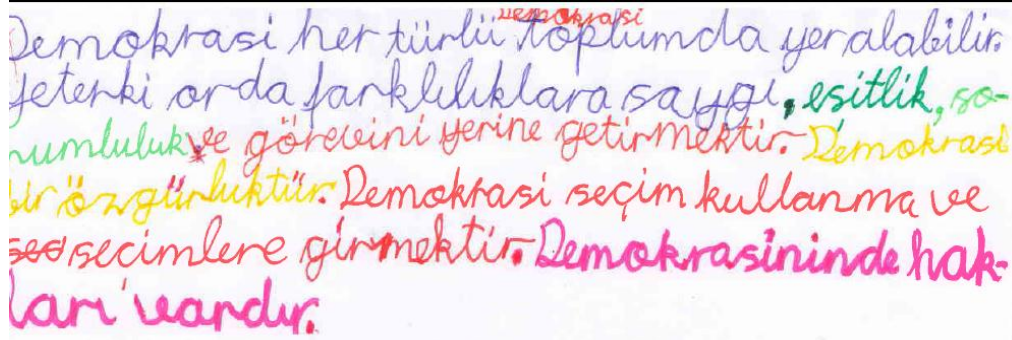 Demokrasi
Demokrasi her türlü toplumda yer alabilir.
Yeterki orda farklılıklara saygı, eşitlik, so-
rumluluk ve görevini yerine getirmektir. Demokrasi
bir özgürlüktür. Demokrasi seçim kullanma ve
seo secimlere girmektir. Demokrasininde hak-
ları vardır.